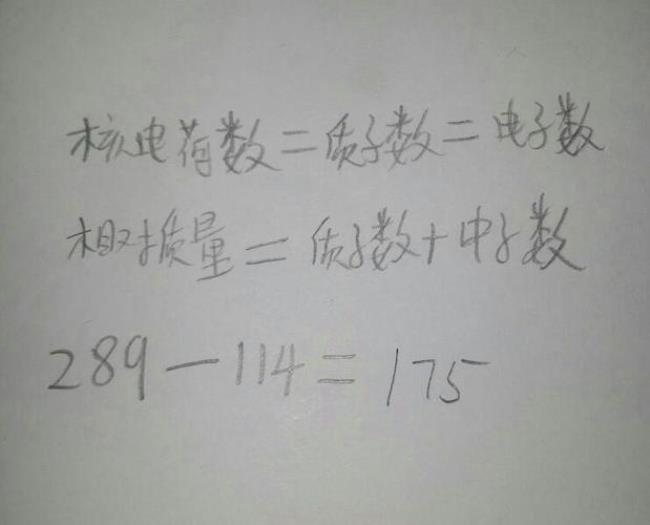 核电荷数=质子数=电子数
相对质量=质子数+中子数
289-114=175